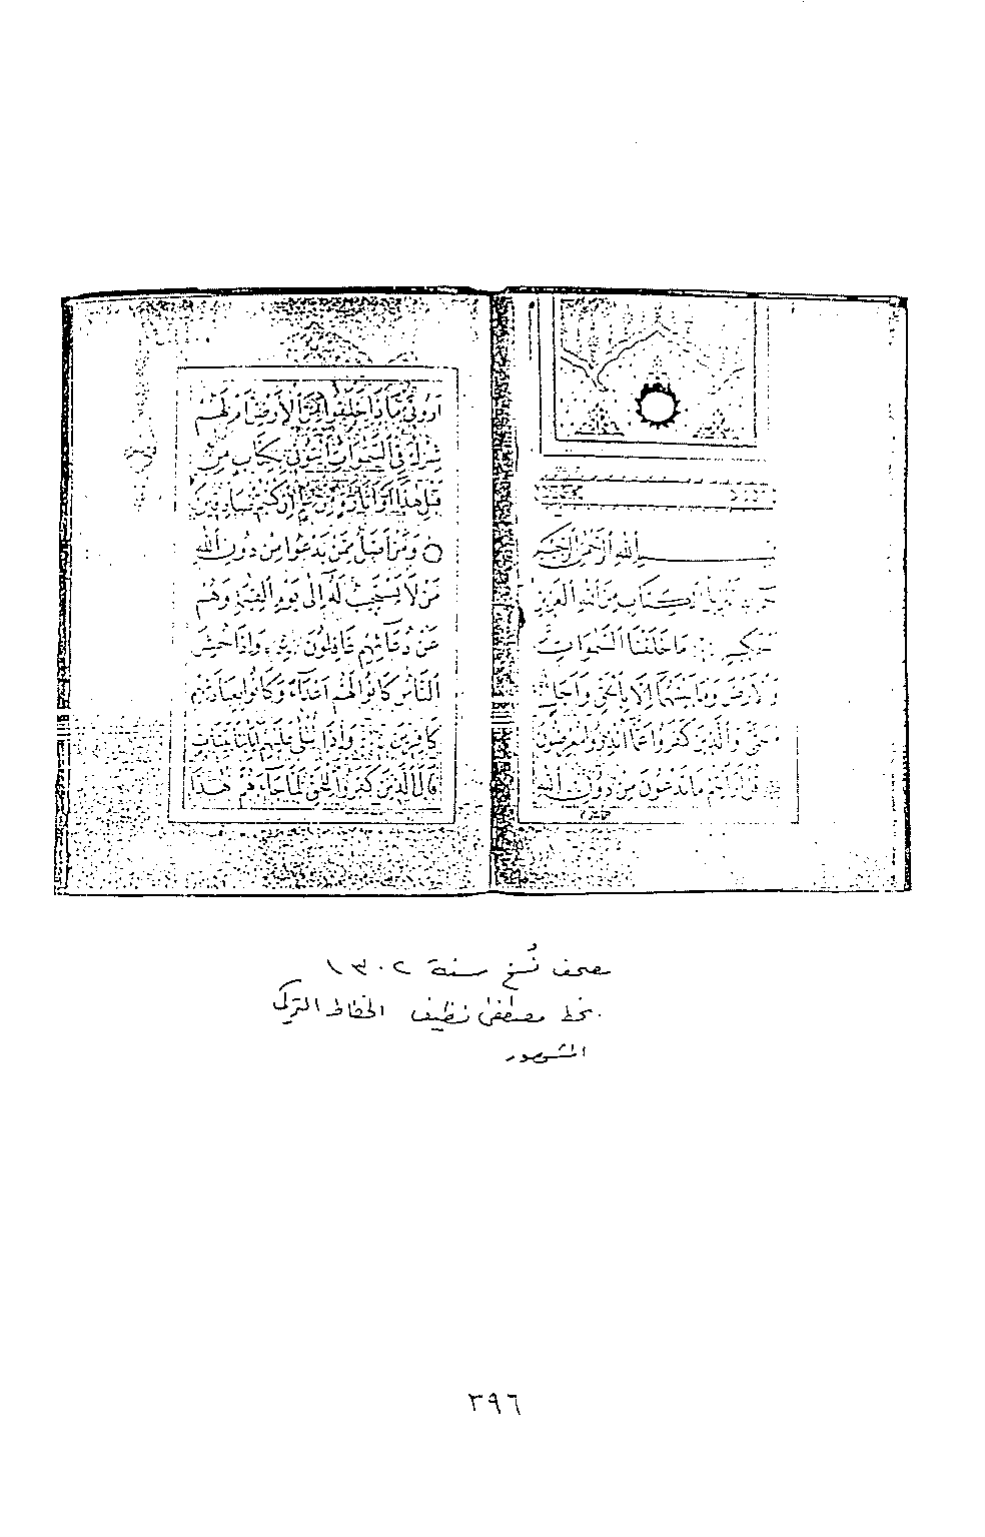 بسم الله الرحمن الرحيم
حم تنزيل الكتاب من الله العزيز
الحكيم ما خلقنا السموات
والارض وما بينهما الا بالحق واجل
مسمى والذين كفروا عما انذروا معرضون
قل ارايتم ما تدعون من دون الله
اَرُونِي مَاذَا خَلَقُوا مِنَ الْاَرْضِ اَمْ لَهُمْ
شِرْكٌ فِي السَّمٰوَاتِ ائْتُونِي بِكِتَابٍ مِنْ
قَبْلِ هٰذَا اَوْ اَثَارَةٍ مِنْ عِلْمٍ اِنْ كُنْتُمْ صَادِقِينَ
وَمَنْ اَضَلُّ مِمَّنْ يَدْعُوا مِنْ دُونِ اللّٰهِ
مَنْ لَا يَسْتَجِيبُ لَهُ اِلٰى يَوْمِ الْقِيٰمَةِ وَهُمْ
عَنْ دُعَائِهِمْ غَافِلُونَ وَاِذَا حُشِرَ
النَّاسُ كَانُوا لَهُمْ اَعْدَاءً وَكَانُوا بِعِبَادَتِهِمْ
كَافِرِينَ وَاِذَا تُتْلٰى عَلَيْهِمْ اٰيَاتُنَا بَيِّنَاتٍ
قَالَ الَّذِينَ كَفَرُوا لِلْحَقِّ لَمَّا جَاءَهُمْ هٰذَا
مصحف نُسخ سنة ١٣٠٢
بخط مصطفى نظيف الخطاط التركي
المشهور
٣٩٦